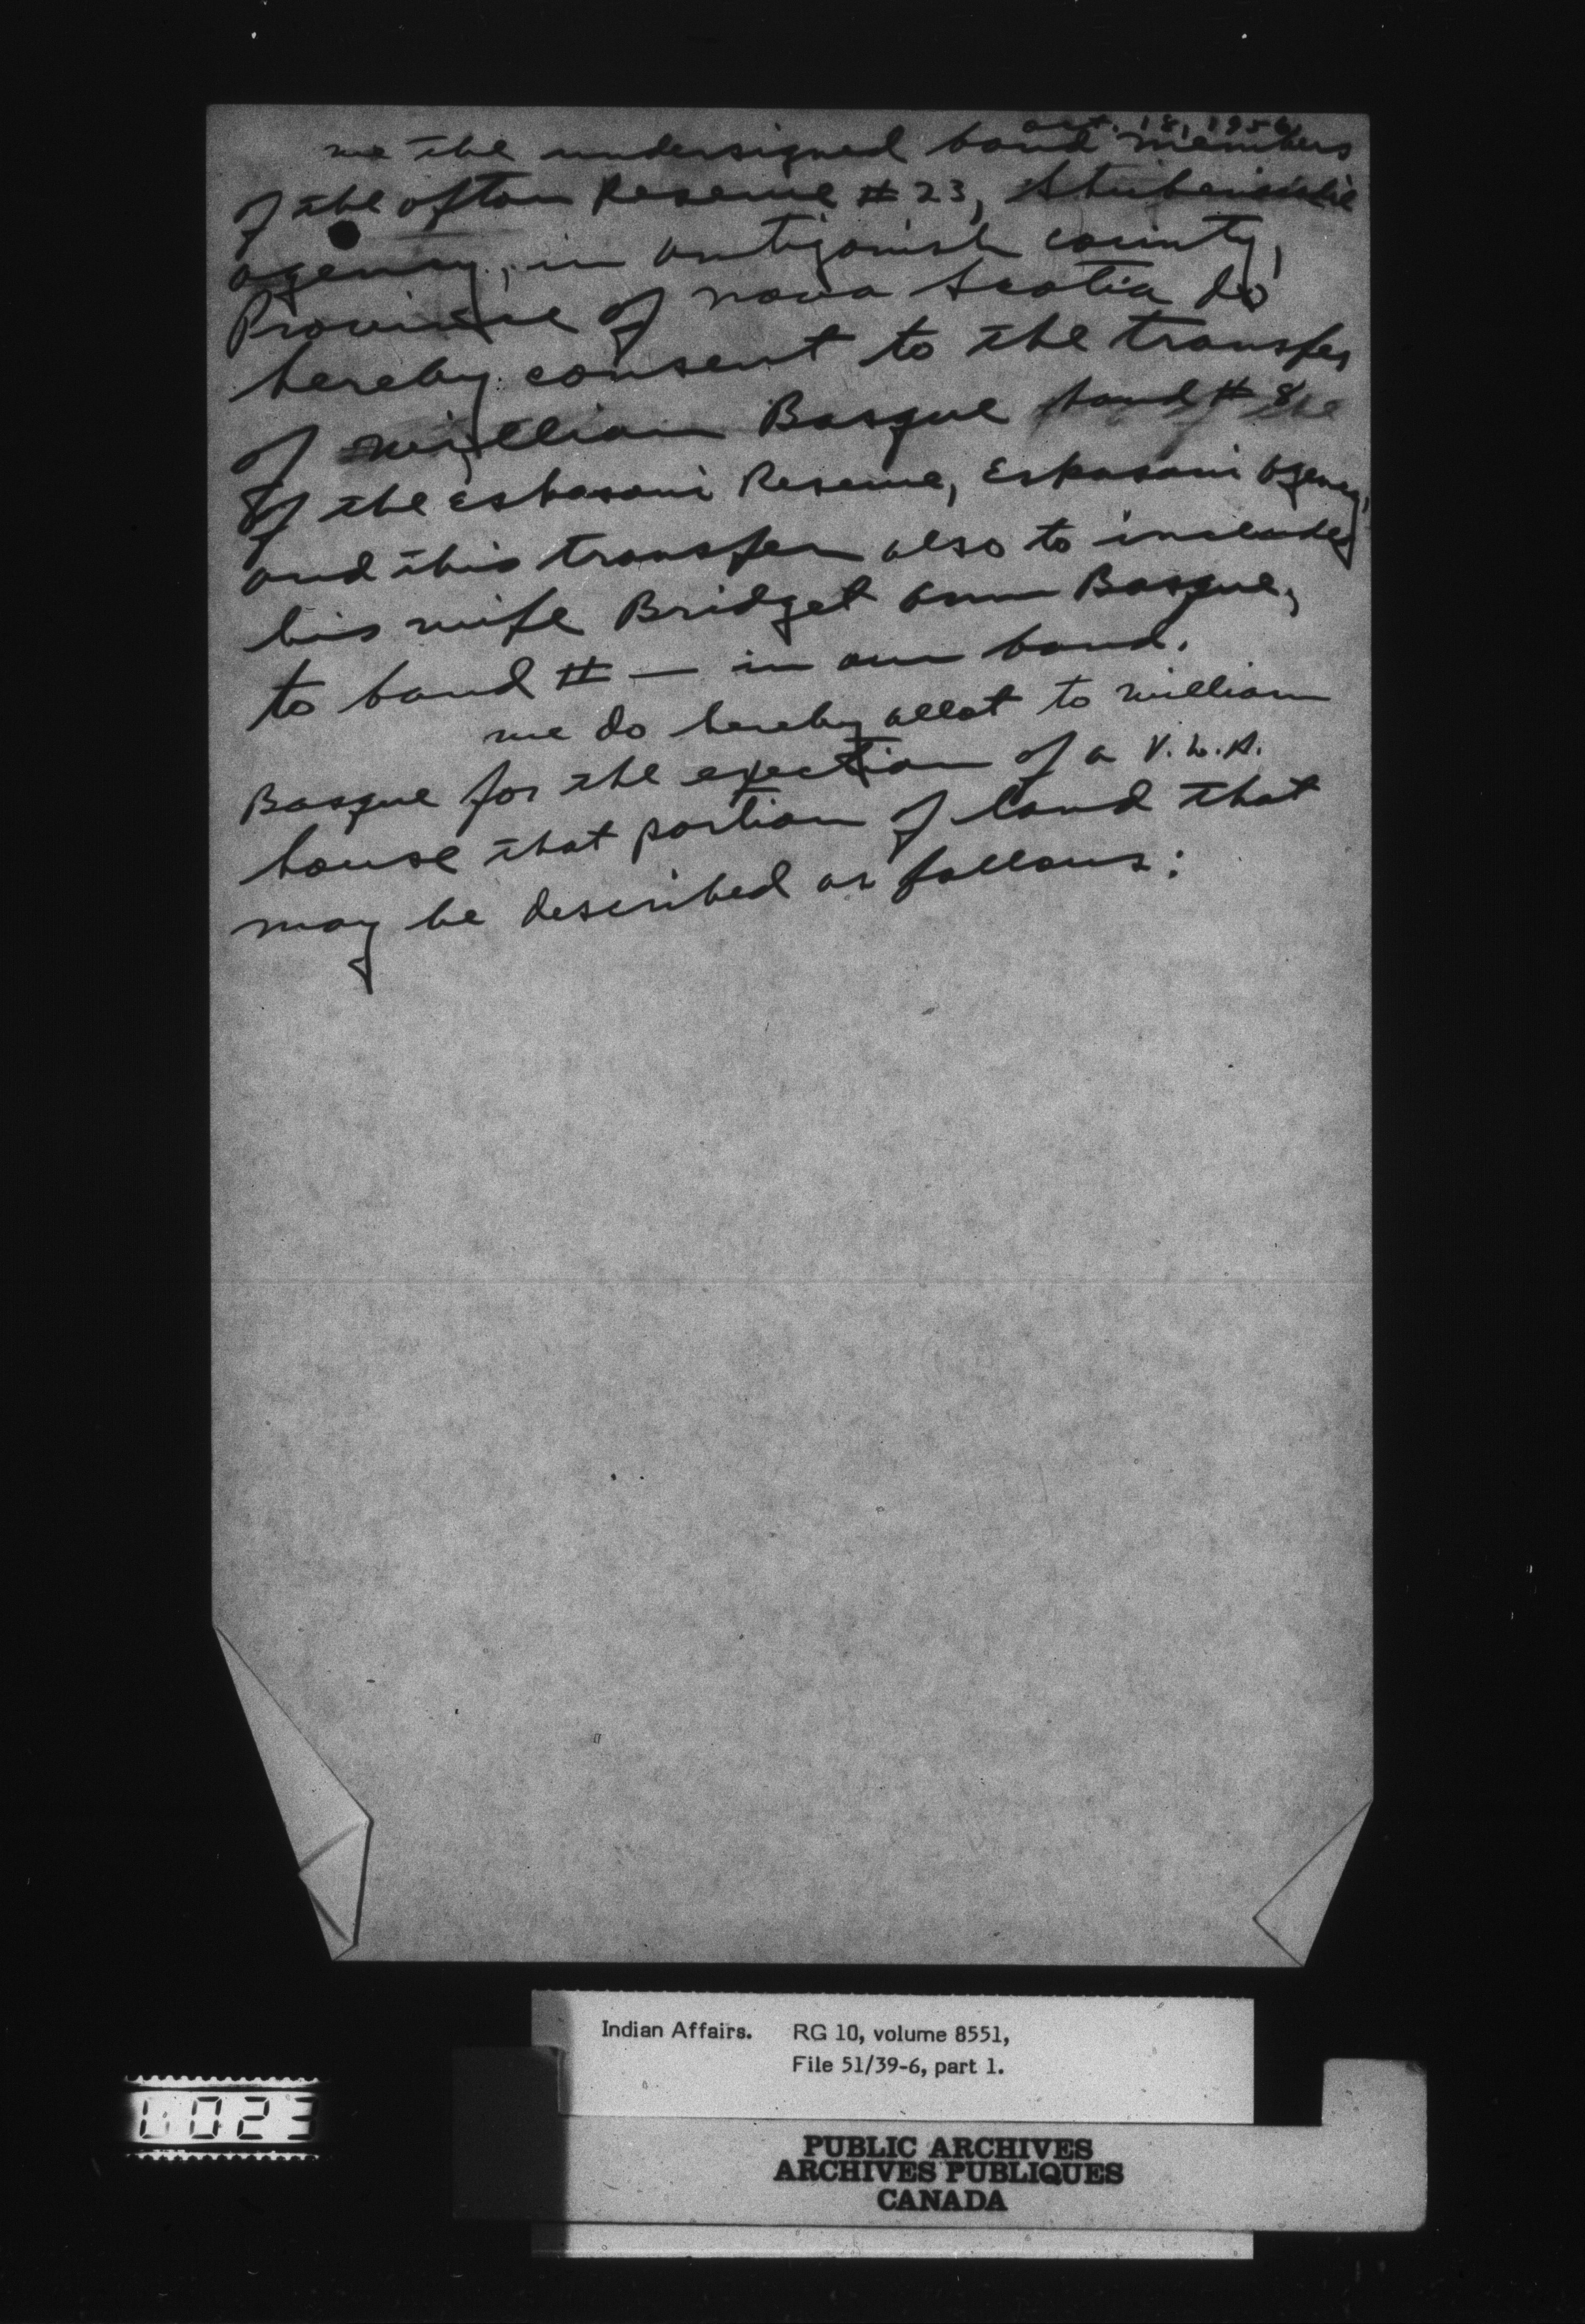 Oct. 18, 1956
We the undersigned band members
of the Afton Reserve # 23, Shubenacadie
Agency, in Antigonish County,
Province of Nova Scotia do
hereby consent to the transfer
of William Basque band # 8
of the Eskasoni Reserve, Eskasoni Agency,
and this transfer also to include
his wife Bridget Ann Basque,
to band # — in our band.
We do hereby allot to William
Basque for the erection of a V.L.A.
house that portion of land that
may be described as follows:
Indian Affairs. RG 10, volume 8551,
File 51/39-6, part 1.
0023
PUBLIC ARCHIVES
ARCHIVES PUBLIQUES
CANADA